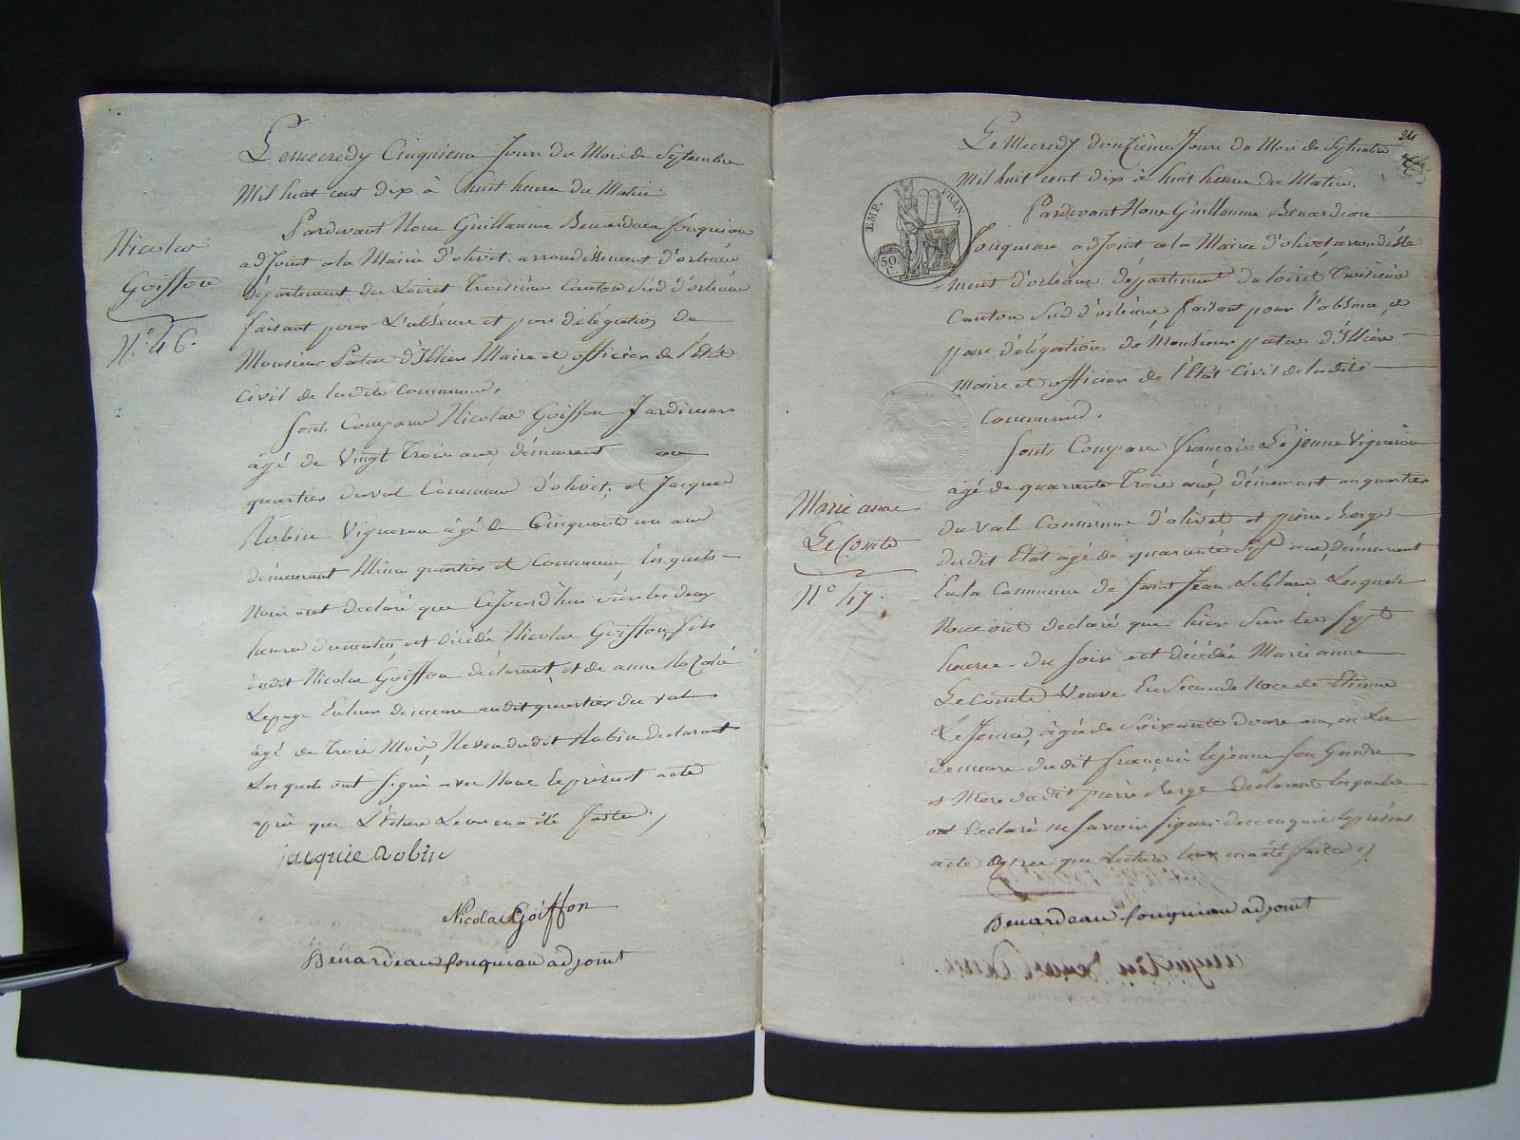 Nicolas
Goiffon
N.º 46.
Le mecredy Cinquieme Jour du Mois de Septembre
Mil huit cent dix à huit heure du Matin.
Pardevant Nous Guillaume Benardeau fouqueau
adjoint a la Mairie d'olivet arrondissement d'orleans
département du Loiret Troisième Canton Sud d'orléans
faisant pour L'absence et par délégation de
Monsieur Patas d'Illiers Maire et officier de l'état
Civil de ladite Commune.
Sont Comparu Nicolas Goiffon Jardinier
âgé de Vingt Trois ans, démeurant au
quartier du val Commune d'olivet, et Jacques
Robin Vigneron âgé de Cinquante un ans
démeurant Même quartier et Commune, lesquels
Nous ont declaré que Cejourd'hui sur les deux
heures du matin, est décédé Nicolas Goiffon, fils
dudit Nicolas Goiffon déclarant, et de anne Rozalie
Lepage En leur demeure audit quartier du val
âgé de Trois Mois, Neveu dudit Robin declarant
Lesquels ont signé avec Nous le présent acte
après que Lecture Leur en a été faite.
jacque Robin
Nicolas Goiffon
Bénardeau fouquiau adjoint
24
Le Mecredy douzième Jour du Mois de Septembre
Mil huit cent dix à huit heure du Matin.
Pardevant Nous Guillaume Benardeau
fouquiau adjoint a la Mairie d'olivet, arrondisse
ment d'orléans département du loiret Troisième
Canton Sud d'orléans, faisant pour l'absence, et
par délégation de Monsieur patas d'Illiers
Maire et officier de l'Etat Civil de ladite
Commune.
Sont Comparu françois Le jeune Vigneron
âgé de quarante Trois ans, démeurant au quartier
du val Commune d'olivet et pierre
dudit Etat âgé de quarante Sept ans, démeurant
En la Commune de Saint Jean Leblanc, Lesquels
Nous ont declaré que hier Sur les Sept
heures du soir est décédée Marie anne
Le Comte Veuve En Seconde Noce de Etienne
Le Jeune, âgée de Soixante douze ans, en La
demeure dudit françois lejeune Son Gendre
et Mere dudit pierre declarant lesquels
ont declaré ne savoir signer de ce enquis le présent
acte après que Lecture leur en a été faite
Benardeau fouquiau adjoint
Marie anne
Le Comte
N.º 47.
EMP. FRAN.
50